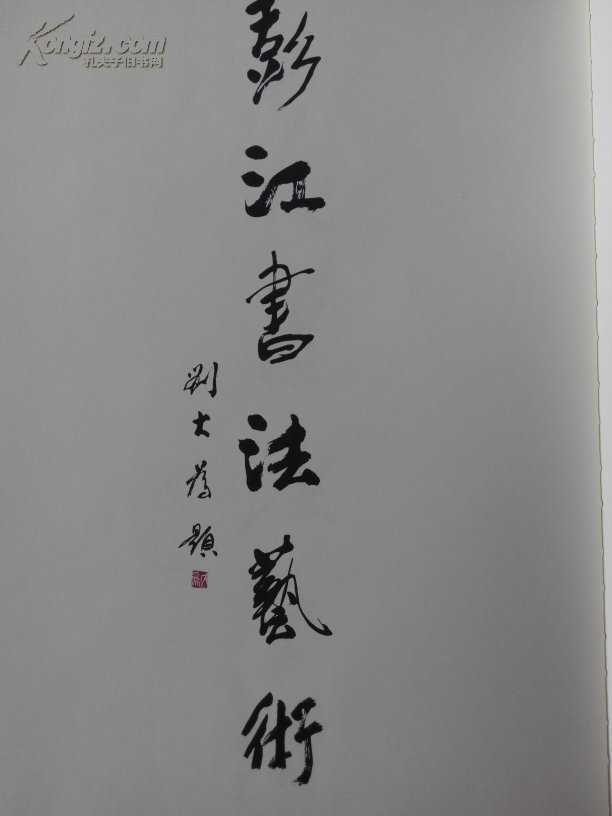 Kongfz.com
孔夫子旧书网
彭江書法藝術
劉大為題